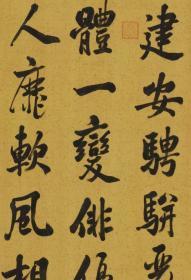 建安騁駢
體一變俳優
人靡軟風